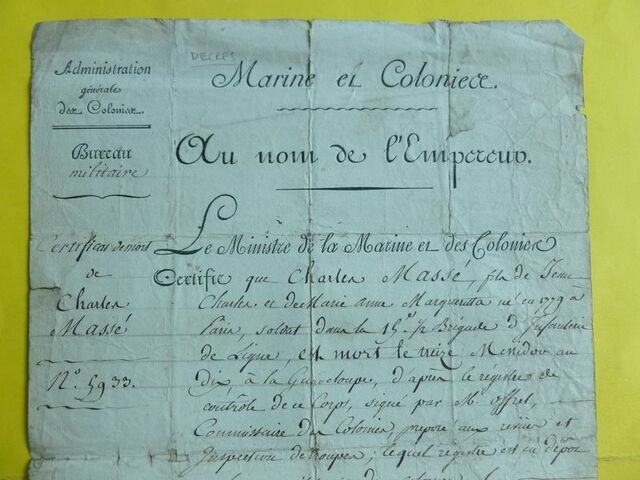 DECRES
Administration
générale
des Colonies.
Bureau
militaire
Certificat de mort
de
Charles
Massé
N.º 5933.
Marine et Colonies.
Au nom de l'Empereur.
Le Ministre de la Marine et des Colonies
Certifie que Charles Massé, fils de Jean
Charles et de Marie anne Margueritta né en 1779 à
Paris, soldat dans la 15.e ½ Brigade d'Infanterie
de Ligne, est mort le treize Messidor an
Dix à la Guadeloupe, d'après le régistre de
contrôle de ce Corps, signé par M. Offret,
Commissaire des Colonies préposé aux revues et
Inspection de troupes; lequel régistre est en dépôt